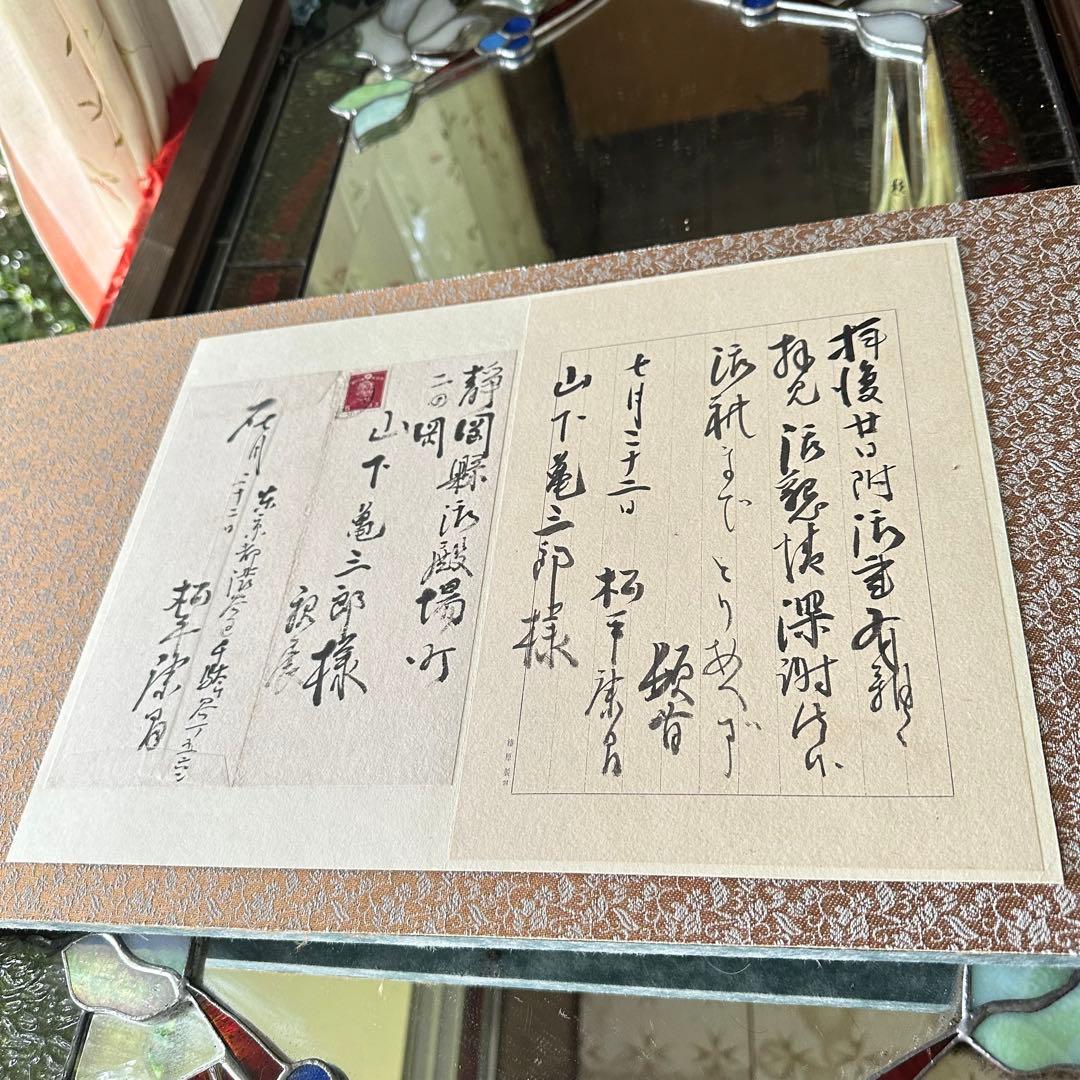 拝復廿日附御書有難く
拝見御懇情深謝仕候
御礼までとりあへず
頓首
七月二十二日
松平康昌
山下亀三郎様
榛原製
静岡縣御殿場町
二の岡
山下亀三郎様
親展
七月二十二日
東京都渋谷区千駄ヶ谷一ノ五六六
松平康昌